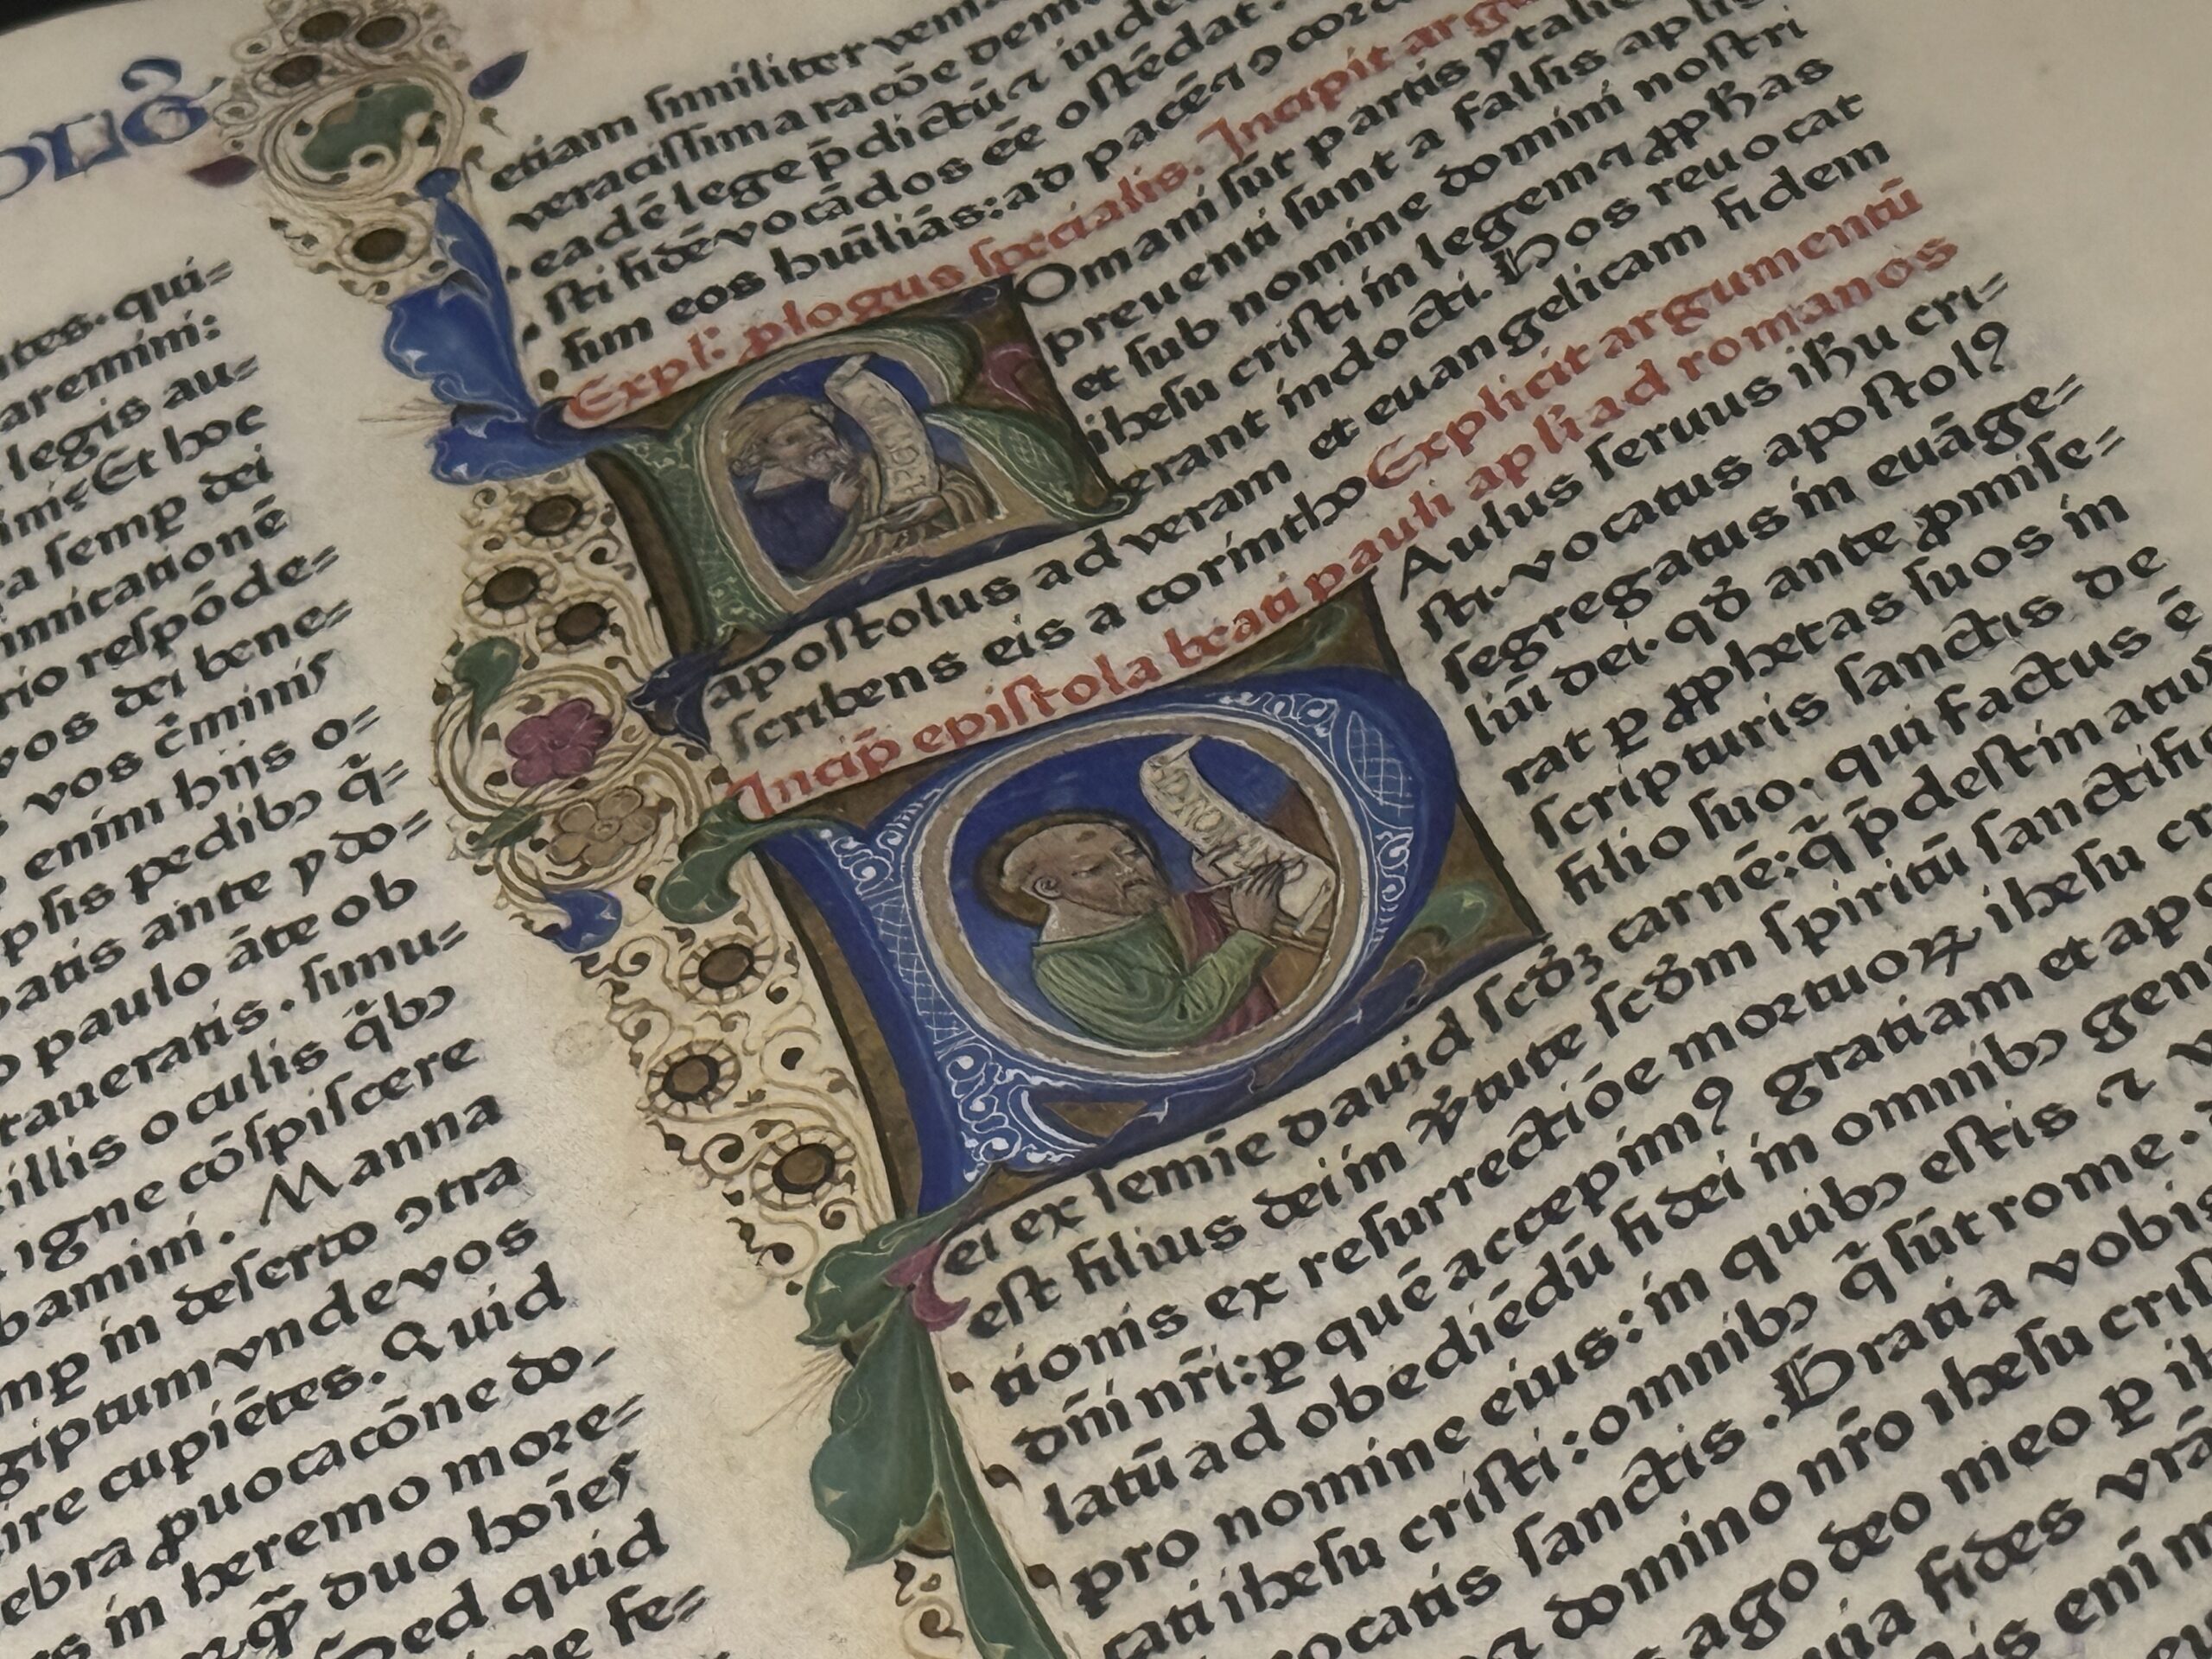 OLOG
tes. qui=
aremini:
legis au=
Et hoc
a semꝑ dei
mitationē
rio respōde=
vos dei bene=
vos c̄minis
enim hijs o=
psis pedibꝫ q̄=
patis ante ydo=
paulo āte ob
taueratis. simu=
illis oculis q̄bꝫ
igne cōspiscere
bamini. Manna
mꝑ in deserto ꝯtra
giptum vnde vos
ire cupiētes. Quid
ebra ꝓuocacōne do-
s in heremo more=
qꝫ duo hoīes
Sed quid
ne fe=
etiam similiter
veracissima racōe dem
eadē lege p̄dictū ⁊ iude
sti fidē vocādos eē ostēdat.
sim eos huīliās: ad pacē ⁊ ꝯcor
Expl: ꝓlogus specialis. Incipit argu
ROmani sūt partis ytalie
preuenti sunt a falsis aplis
et sub nomine domini nostri
ihesu cristi in legem ⁊ ꝓphas
erant indocti. Hos reuocat
apostolus ad veram et euangelicam fidem
scribens eis a corintho Explicit argumentū
Incip̄ epistola beati pauli apli ad romanos
PAulus seruus ihu cri=
sti. vocatus apostolꝰ
segregatus in euāge=
liū dei. qđ ante ꝓmise=
rat ꝑ ꝓphetas suos in
scripturis sanctis de
filio suo. qui factus ē
ei ex semīe dauid scđꝫ carnē: q̄ p̄destinatus
est filius dei in v̄tute scđm spiritū sanctific
tionis ex resurrectiōe mortuoꝝ ihesu cr
dn̄i nr̄i: ꝑ quē accepimꝰ gratiam et apo
latū ad obediēdū fidei in omnibꝫ gen
pro nomine eius: in quibꝫ estis ⁊ v
cati ihesu cristi: omnibꝫ q̄ sūt rome.
ocatis sanctis. Gratia vobis
⁊ domino nr̄o ihesu cris
ago deo meo ꝑ ih
uia fides vrā
is eni m